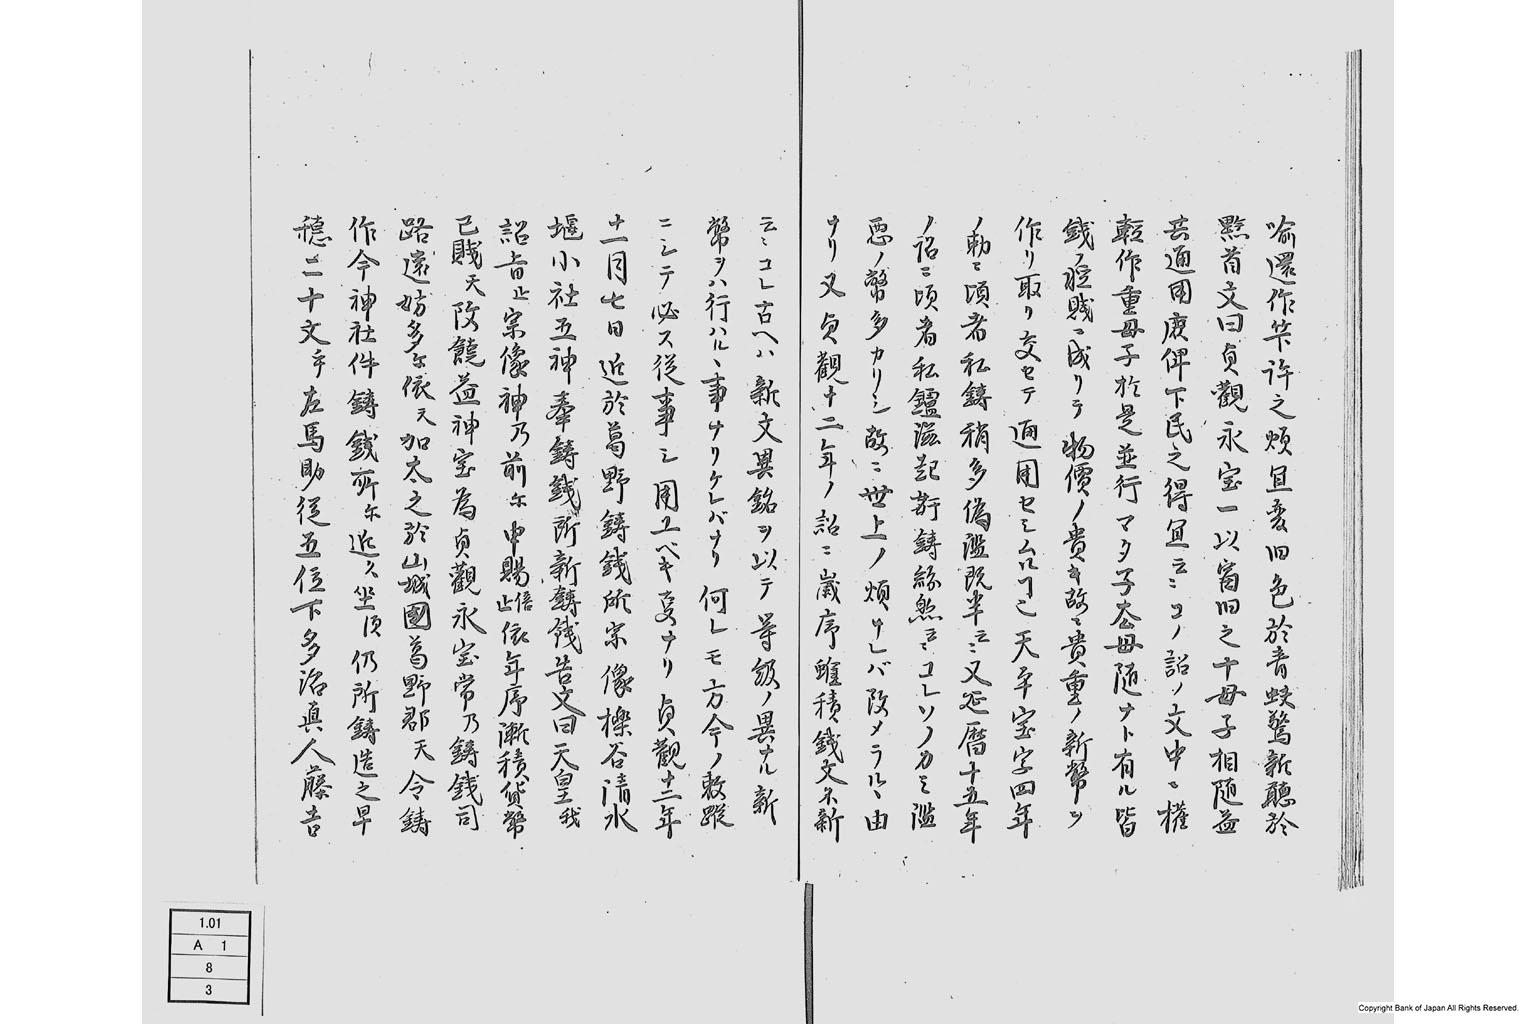 喩還作竿許之煩宜変旧色於青蚨驚新聴於
黔首文曰貞觀永宝一以當旧之十母子相随並
共通用庶俾下民之得宜云ミコノ詔ノ文中ニ權
軽作重母子於是並行マタ子太母随ナト有ル皆
銭ノ軽賎ニ成リテ物價ノ貴キ故ニ貴重ノ新幣ヲ
作リ取リ交セテ通用セシムルコ也天平宝字四年
ノ勅ニ頃者私鋳稍多偽濫既半云ミ又延暦十五年
ノ詔ニ頃者私鑪滋起奸鋳絲然云ミコレソノカミ濫
悪ノ幣多カリシ故ニ世上ノ煩ナレバ改メラルヽ由
ナリ又貞觀十二年ノ詔ニ歳序雖積銭文不新
云ミコレ古ヘハ新文異銘ヲ以テ等級ノ異ナル新
幣ヲハ行ハルヽ事ナリケレバナリ何レモ方今ノ敷蹤
ニシテ必ス從事シ用ユベキ変ナリ貞觀十二年
十一月七日近於葛野鋳銭所宗像櫟谷清水
堰小社五神奉鋳銭所新鋳銭告文曰天皇我
詔旨止宗像神乃前尓申賜倍止依年序漸積貨幣
已賎天改饒益神宝為貞觀永宝常乃鋳銭司
路遠妨多尓依天加太之於山城國葛野郡天令鋳
作今神社件鋳銭所尓近久坐須仍所鋳造之早
穂二十文乎左馬助從五位下多治真人藤吉
1.01
A 1
8
3
Copyright Bank of Japan All Rights Reserved.